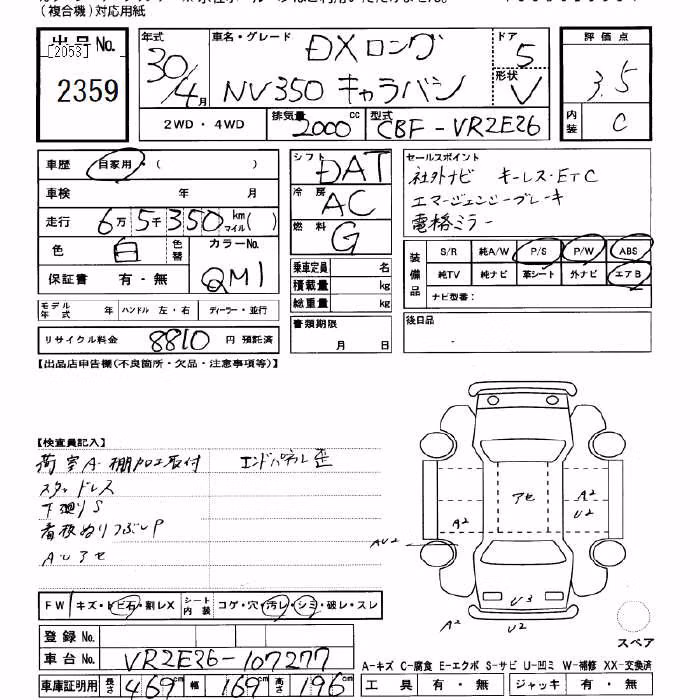 (複合機)対応用紙
出品No. [2053] 2359
年式 30/4月
車名・グレード DXロング NV350 キャラバン
ドア 5
形状 V
評価点 3.5
内装 C
2WD・4WD
排気量 2000cc
型式 CBF-VR2E26
車歴 自家用・( )
車検 年 月
走行 6万5千350km マイル( )
色 白 色替
カラーNo. QM1
保証書 有・無
モデル年式 年 ハンドル 左・右 ディーラー・並行
リサイクル料金 8810 円 預託済
シフト DAT
冷房 AC
燃料 G
乗車定員 名
積載量 kg
総重量 kg
書類期限 月 日
セールスポイント
社外ナビ キーレス・ETC
エマージェンシーブレーキ
電格ミラー
装備品 S/R 純A/W P/S P/W ABS
純TV 純ナビ 革シート 外ナビ エアB
ナビ型番:
後日品
【出品店申告欄(不良箇所・欠品・注意事項等)】
【検査員記入】
荷室A・棚加工取付 エンドパネル歪
スタッドレス
下廻りS
看板ぬりつぶしP
AUアセ
アセ
A2
A2
U2
AU2
U3
A2
U2
スペア
FW キズ・トビ石・割レX シート内装 コゲ・穴・汚レ・シミ・破レ・スレ
登録No.
車台No. VR2E26-107277
車庫証明用 長さ 469cm 幅 169cm 高さ 196cm
A-キズ C-腐食 E-エクボ S-サビ U-凹ミ W-補修 XX-交換済
工具 有・無 ジャッキ 有・無